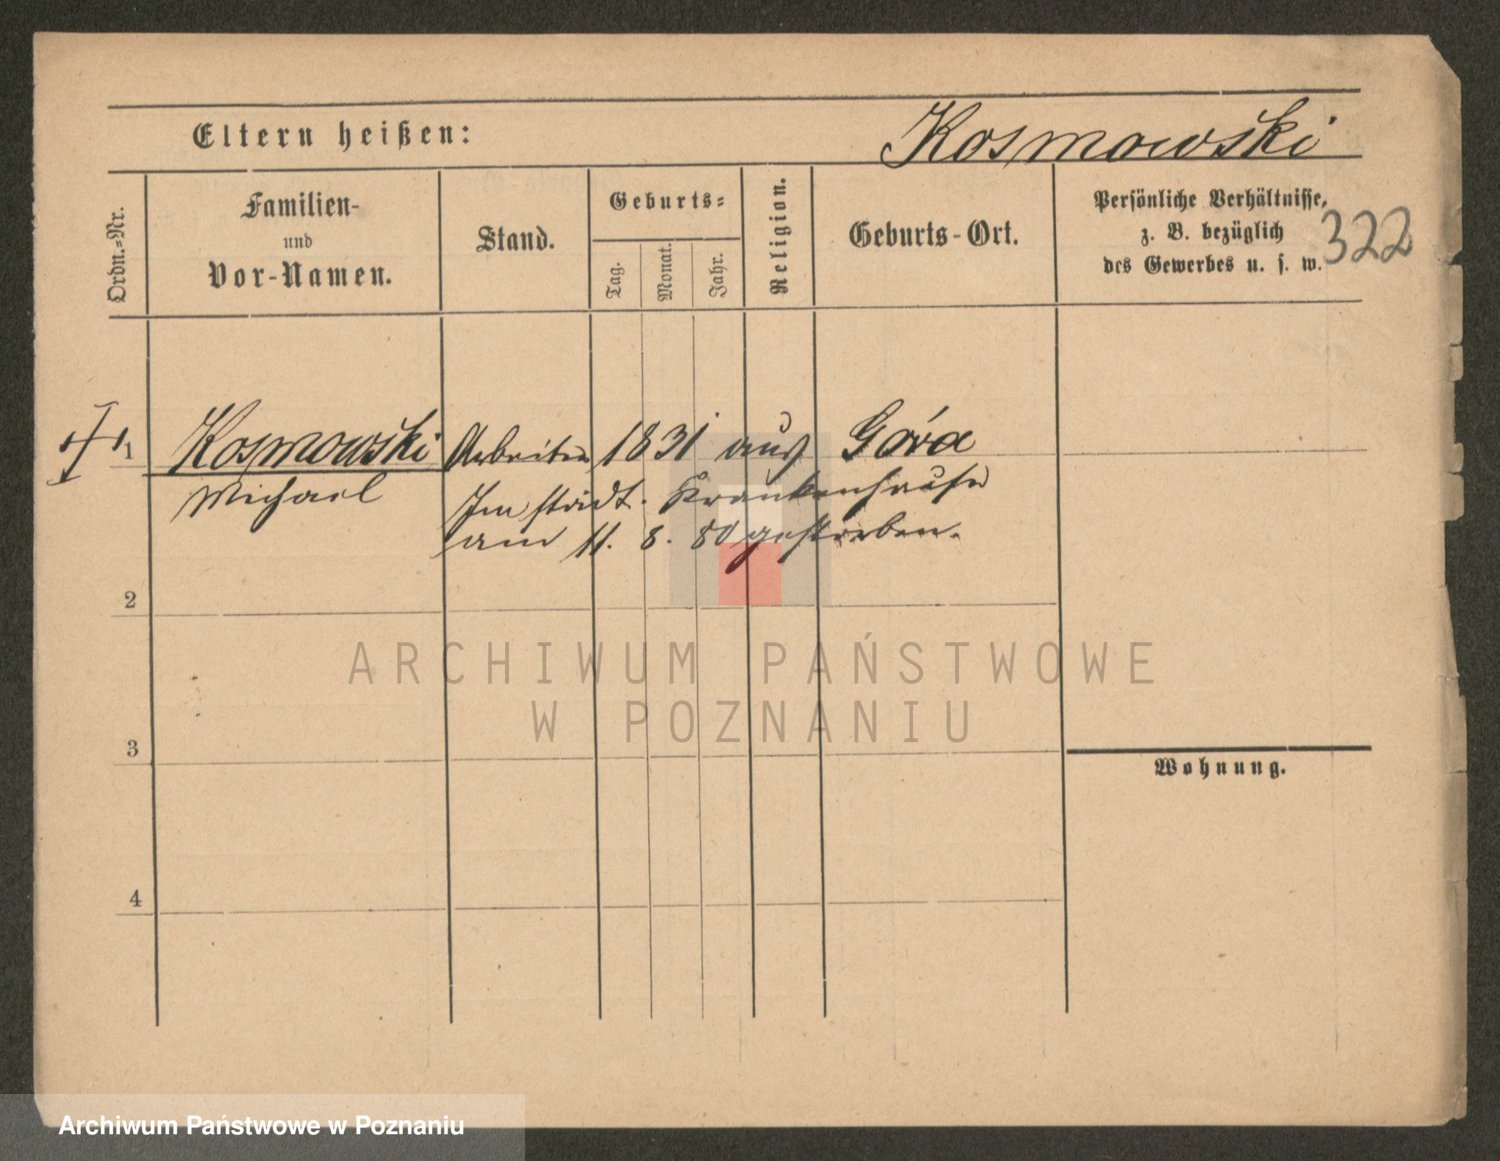 Eltern heißen:
Kosmowski
Ordn.-Nr.
Familien-
und
Vor-Namen.
Stand.
Geburts-
Tag.
Monat.
Jahr.
Religion.
Geburts-Ort.
Persönliche Verhältnisse,
z. B. bezüglich
des Gewerbes u. s. w.
322
1 Kosmowski Arbeiter 1831 aus Góra
Michael Im städt. Krankenhause
am 11. 8. 80 gestorben.
2
ARCHIWUM PAŃSTWOWE
W POZNANIU
3
Wohnung.
4
Archiwum Państwowe w Poznaniu